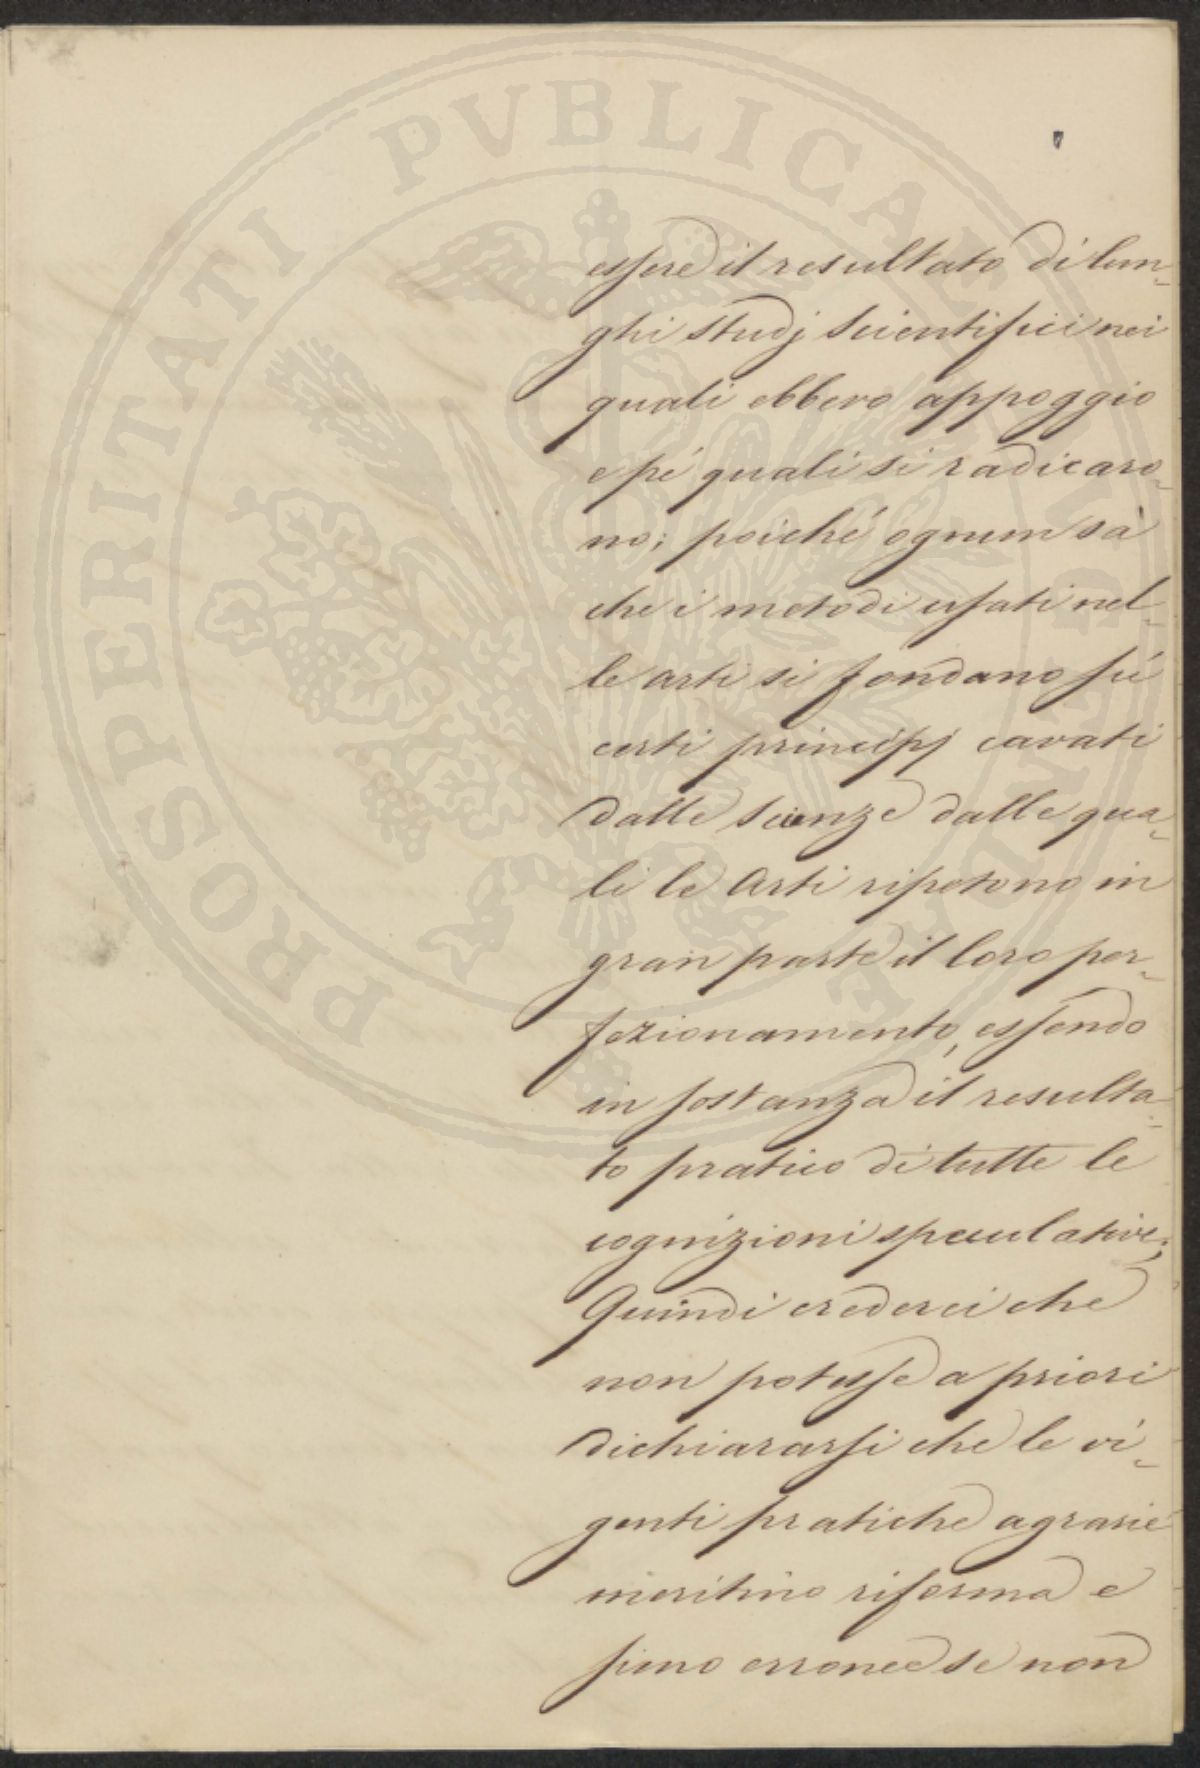 PROSPERITATI PVBLICAE AVGENDAE
essere il resultato di lun-
ghi studj scientifici nei
quali ebbero appoggio
e pe' quali si radicaro-
no; poiché ognun sà
che i metodi usati nel-
le arti si fondano sù
certi principj cavati
dalle scienze dalle qua-
li le Arti ripetono in
gran parte il loro per-
fezionamento, essendo
in sostanza il resulta-
to pratico di tutte le
cognizioni speculative;
Quindi crederei che
non potesse a priori
dichiararsi che le vi-
genti pratiche agrarie
meritino riforma e
sieno erronee se non